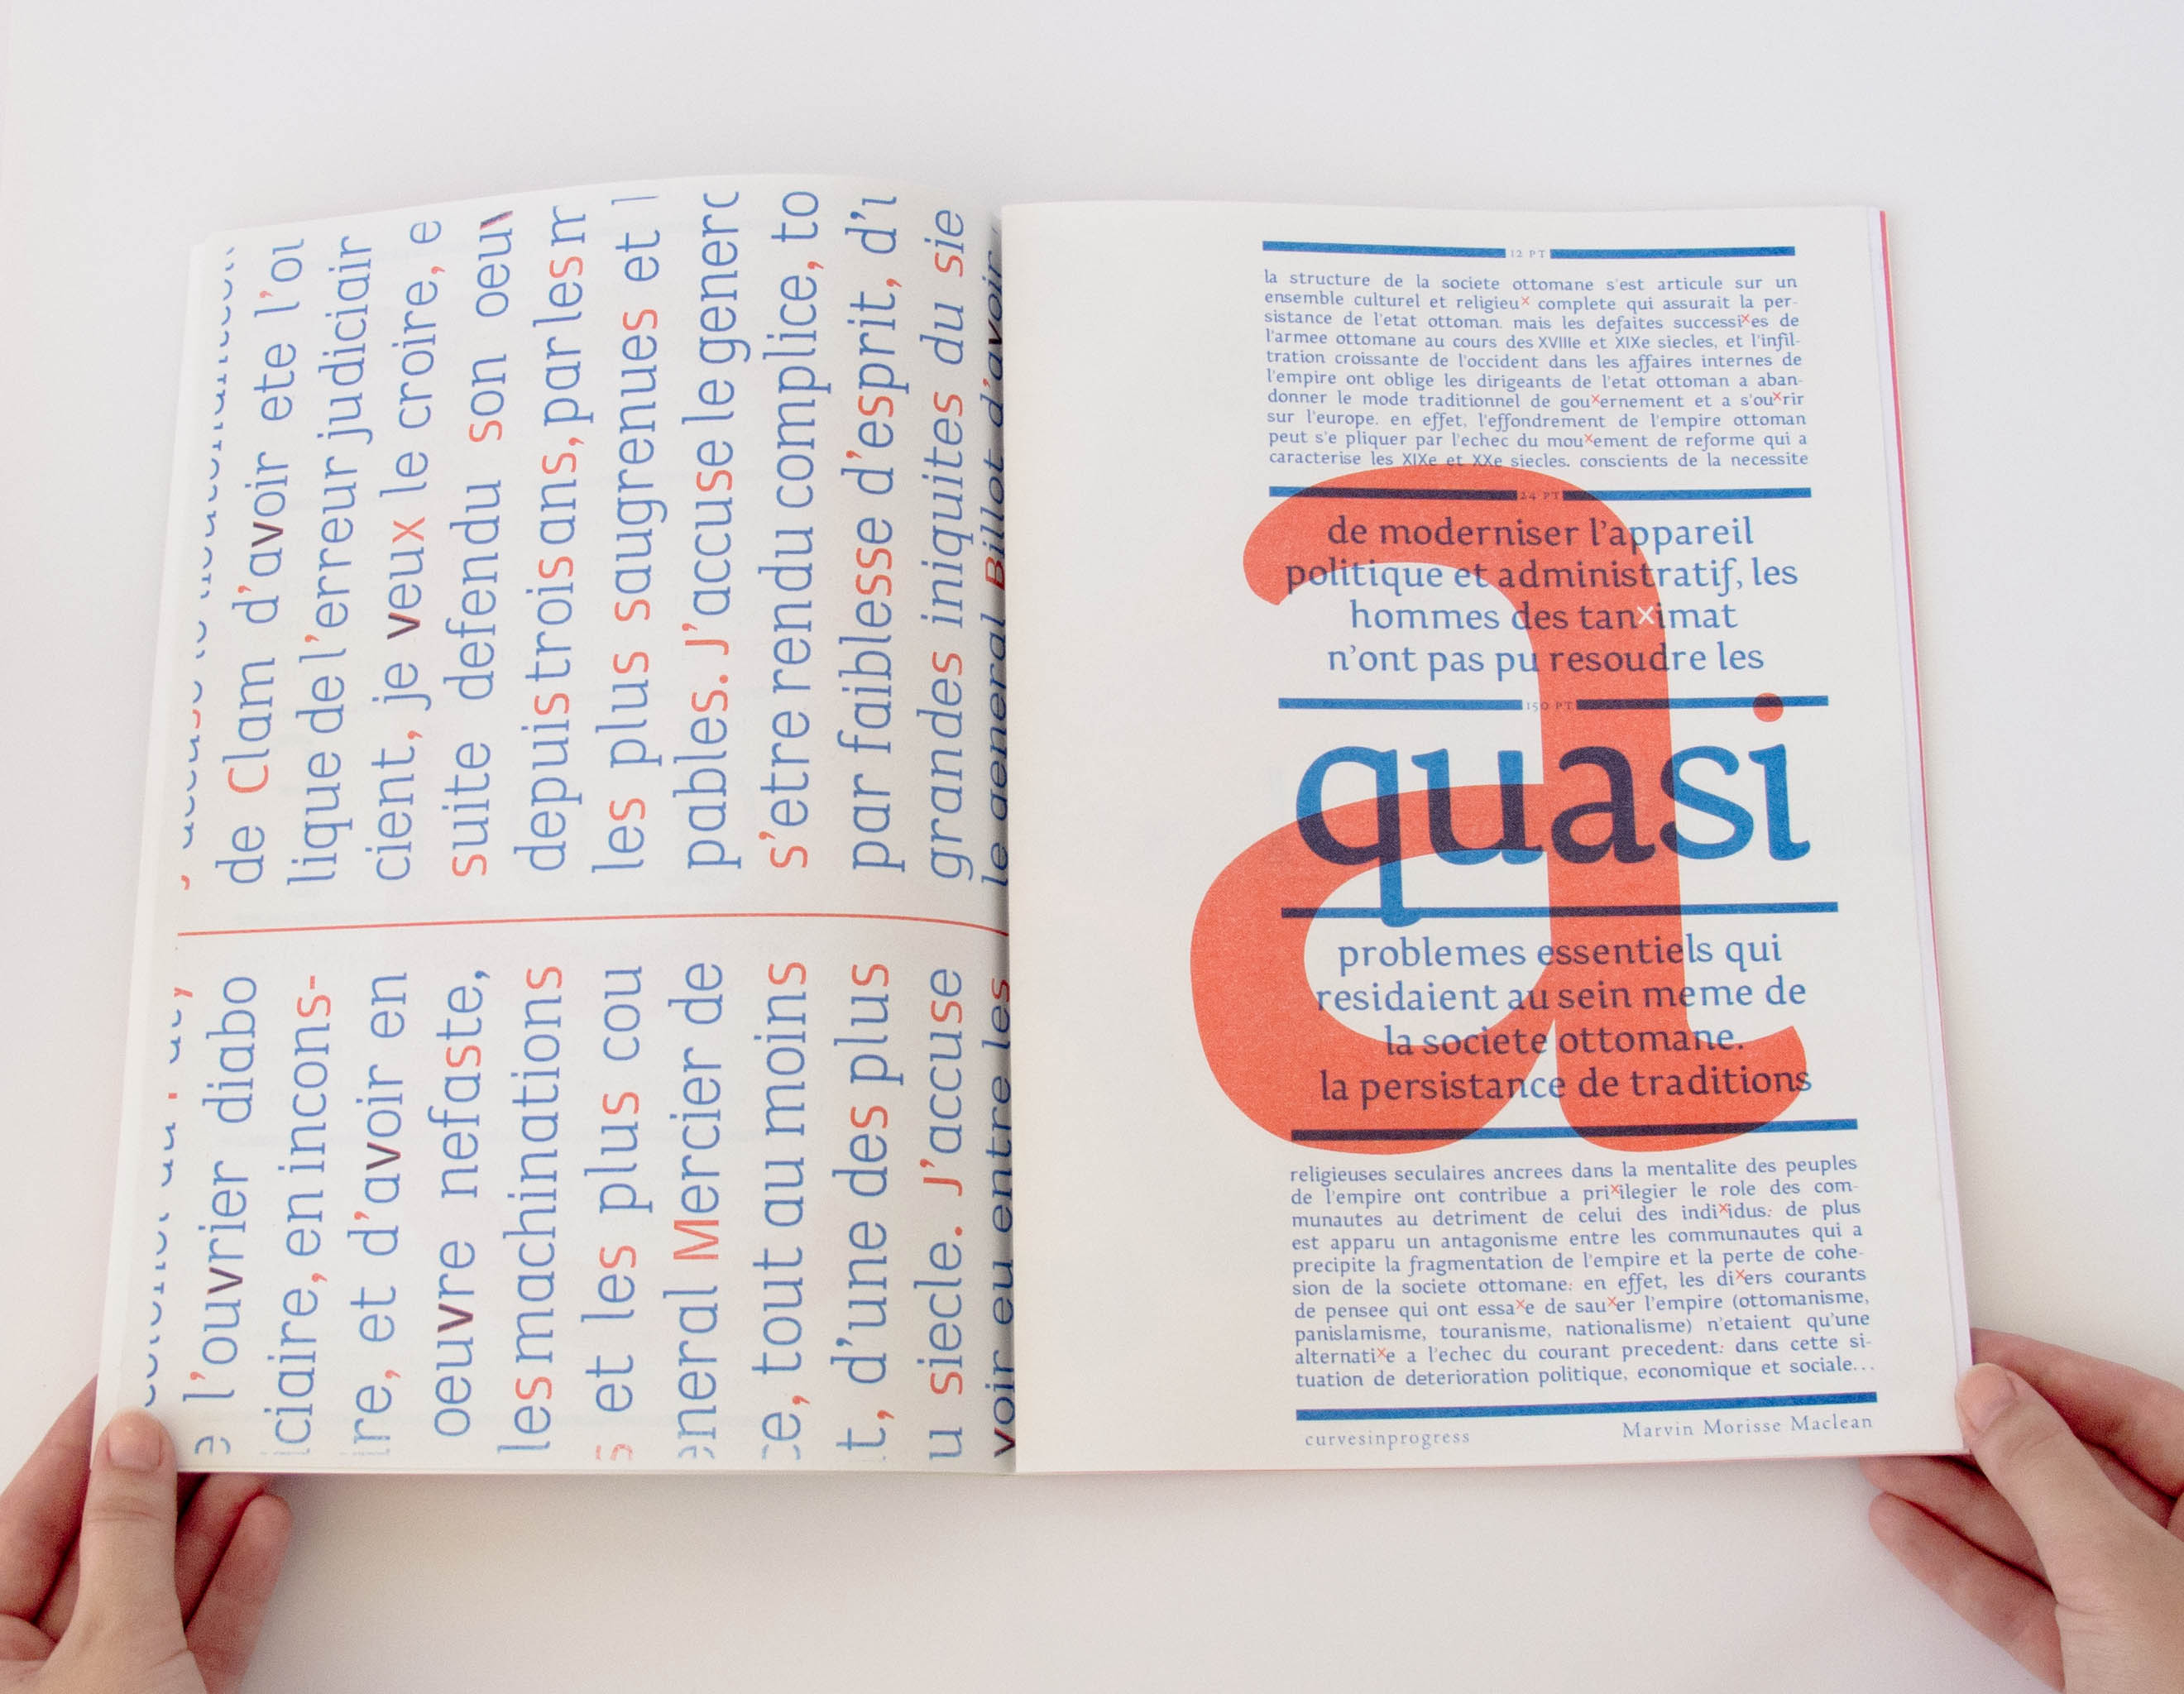 e l'ouvrier diabo
ciaire, en incons-
re, et d'avoir en
oeuvre nefaste,
les machinations
s et les plus cou
eneral Mercier de
ce, tout au moins
t, d'une des plus
u siecle. J'accuse
voir eu entre les
de Clam d'avoir ete l'ou
lique de l'erreur judiciair
cient, je veux le croire, e
suite defendu son oeuv
depuis trois ans, par les m
les plus saugrenues et l
pables. J'accuse le genera
s'etre rendu complice, to
par faiblesse d'esprit, d'u
grandes iniquites du sie
le general Billot d'avoir
12 PT
la structure de la societe ottomane s'est articule sur un
ensemble culturel et religieux complete qui assurait la per-
sistance de l'etat ottoman. mais les defaites successixes de
l'armee ottomane au cours des XVIIIe et XIXe siecles, et l'infil-
tration croissante de l'occident dans les affaires internes de
l'empire ont oblige les dirigeants de l'etat ottoman a aban-
donner le mode traditionnel de gouxernement et a s'ouxrir
sur l'europe. en effet, l'effondrement de l'empire ottoman
peut s'e pliquer par l'echec du mouxement de reforme qui a
caracterise les XIXe et XXe siecles. conscients de la necessite
24 PT
de moderniser l'appareil
politique et administratif, les
hommes des tanximat
n'ont pas pu resoudre les
150 PT
quasi
a
problemes essentiels qui
residaient au sein meme de
la societe ottomane.
la persistance de traditions
religieuses seculaires ancrees dans la mentalite des peuples
de l'empire ont contribue a prixilegier le role des com-
munautes au detriment de celui des indixidus: de plus
est apparu un antagonisme entre les communautes qui a
precipite la fragmentation de l'empire et la perte de cohe-
sion de la societe ottomane: en effet, les dixers courants
de pensee qui ont essaxe de sauxer l'empire (ottomanisme,
panislamisme, touranisme, nationalisme) n'etaient qu'une
alternatixe a l'echec du courant precedent: dans cette si-
tuation de deterioration politique, economique et sociale...
curvesinprogress
Marvin Morisse Maclean